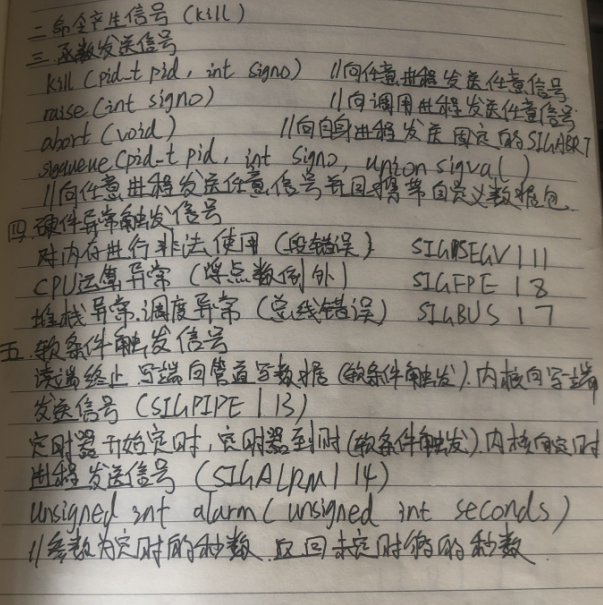 二.命令产生信号 (kill)
三.函数发送信号
kill (pid_t pid, int signo) //向任意进程发送任意信号
raise (int signo) //向调用进程发送任意信号
abort (void) //向自身进程发送固定的SIGABRT
sigqueue (pid_t pid, int signo, union sigval)
//向任意进程发送任意信号并可携带自定义数据包.
四.硬件异常触发信号
对内存进行非法使用 (段错误) SIGSEGV | 11
CPU运算异常 (浮点数例外) SIGFPE | 8
堆栈异常.调度异常 (总线错误) SIGBUS | 7
五.软条件触发信号
读端终止 写端向管道写数据 (软条件触发).内核向写端
发送信号 (SIGPIPE | 13)
定时器开始定时,定时器到时 (软条件触发).内核向定时
进程发送信号 (SIGALRM | 14)
unsigned int alarm (unsigned int seconds)
//参数为定时的秒数.返回未定时的秒数